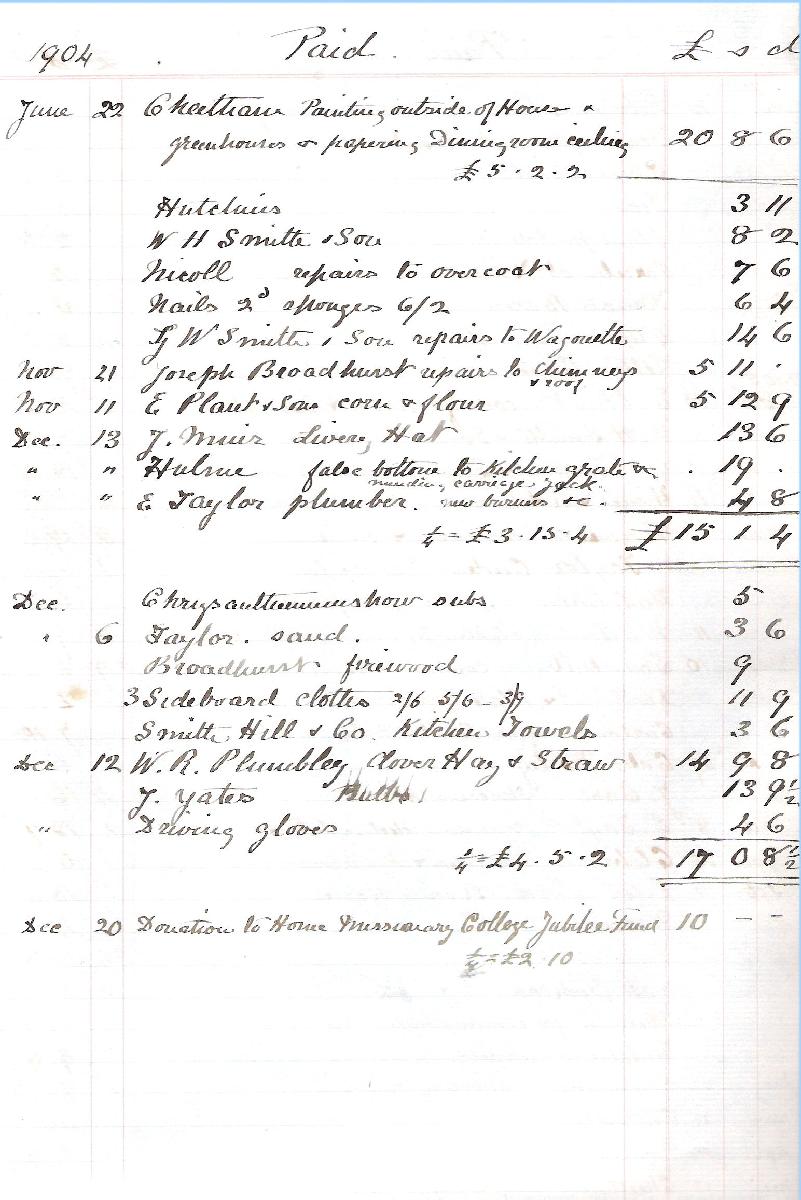 1904 Paid. £ s d
June 22 Cheetham Painting outside of House &
greenhouses & papering Dining room ceiling 20 8 6
£5.2.2
Hutchins 3 11
W H Smith & Son 8 2
Nicoll repairs to overcoat 7 6
Nails 2d sponges 6/2 6 4
W Smith & Son repairs to Wagonette 14 6
Nov 21 Joseph Broadhurst repairs to chimneys 5 11 .
& roof
Nov 11 E Plant & Sons corn & flour 5 12 9
Dec. 13 J. Muir Livery Hat 13 6
" " Hulme false bottom to Kitchen grate & . 19 .
mending carriage jack
" " E Taylor plumber. new burners &c. 4 8
¼ = £3.15.4 £15 1 4
Dec. Chrysanthemum show subs 5
" 6 Taylor. sand. 3 6
Broadhurst firewood 9
3 Sideboard cloths 2/6 5/6 - 3/9 11 9
Smith, Hill & Co. Kitchen Towels 3 6
Dec 12 W. R. Plumbley Clover Hay & Straw 14 9 8
J. Yates Bulbs 13 9½
" Driving gloves 4 6
¼ = £4.5.2 17 0 8½
Dec 20 Donation to Home Missionary College Jubilee Fund 10 – –
¼ = £2.10